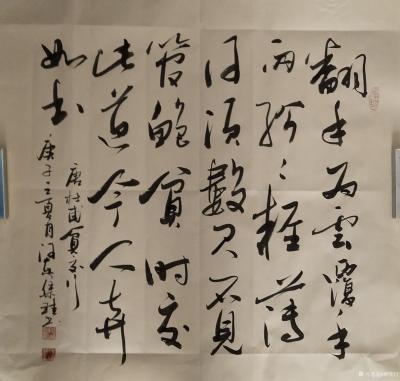 翻手为雲覆手
雨紛々輕薄
何須數君不見
管鮑貧時交
此道今人弃
如土
唐杜甫貧交行
庚子之夏月